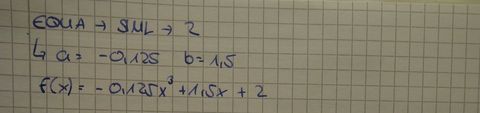 EQUA → SML → 2
↳ a = -0,125 b = 1,5
f(x) = -0,125x³ + 1,5x + 2